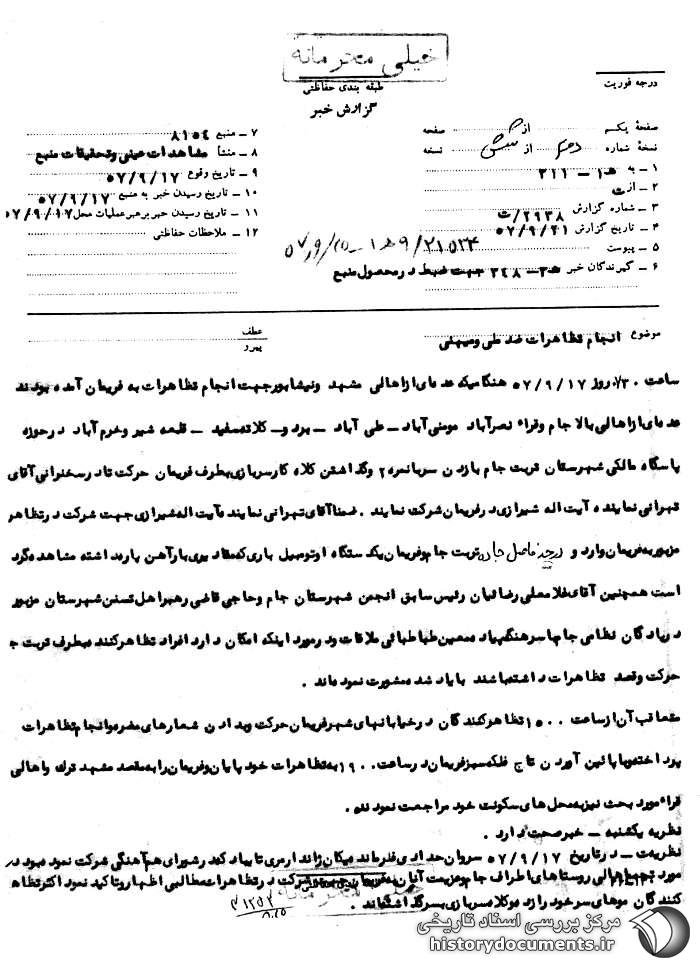 خیلی محرمانه
طبقه بندی حفاظتی
گزارش خبر
درجه فوریت
صفحهٔ یکم از صفحه
نسخهٔ شماره دوم از شش نسخه
۱ ـ به ه‍ ۱ ـ ۳۱۱
۲ ـ از ت
۳ ـ شماره گزارش ۲۹۳۸/ت
۴ ـ تاریخ گزارش ۵۷/۹/۲۱
۵ ـ پیوست
۶ ـ گیرندگان خبر ه‍ ۳ ـ ۳۴۸ جهت ضبط در محصول منبع
۷ ـ منبع ۸۱۵۴
۸ ـ منشأ مشاهدات عینی و تحقیقات منبع
۹ ـ تاریخ وقوع ۵۷/۹/۱۷
۱۰ ـ تاریخ رسیدن خبر به منبع ۵۷/۹/۱۷
۱۱ ـ تاریخ رسیدن خبر برهبر عملیات محل ۵۷/۹/۱۷
۱۲ ـ ملاحظات حفاظتی
موضوع انجام تظاهرات ضد ملی و میهنی
عطف
پیرو
ساعت ۷۳۰ روز ۵۷/۹/۱۷ هنگامیکه عده‌ای از اهالی مشهد و نیشابور جهت انجام تظاهرات به فریمان آمده بودند
عده‌ای از اهالی بالا جام و قراء نصرآباد مومنی‌آباد ـ علی آباد ـ یزد و ـ کلاته سفید ـ قلعه شیر و خرم آباد در حوزه
پاسگاه مالکی شهرستان تربت جام با زدن سر با نمره ۲ و گذاشتن کلاه کار سربازی بطرف فریمان حرکت تا در سخنرانی آقای
تهرانی نماینده آیت اله شیرازی در فریمان شرکت نمایند . ضمنا آقای تهرانی نماینده آیت اله شیرازی جهت شرکت در تظاهر
مزبور به فریمان وارد و در حد فاصل جاده تربت جام و فریمان یکدستگاه اتومبیل باری که مقادیری بار آهن بار داشته مشاهده گرد
است همچنین آقای غلامعلی رضائیان رئیس سابق انجمن شهرستان جام و حاجی قاضی رهبر اهل تسنن شهرستان مزبور
در پادگان نظامی جام با سرهنگ پیاده معین طباطبائی ملاقات و در مورد اینکه امکان دارد افراد تظاهر کننده بطرف تربت ج
حرکت و قصد تظاهرات داشته باشند با یاد شده مشورت نموده‌اند .
متعاقب آن از ساعت ۱۵۰۰ تظاهرکنندگان در خیابانهای شهر فریمان حرکت و با دادن شعارهای مضره و انجام تظاهرات
پرداخته و با پائین آوردن تاج فلکه سبز فریمان در ساعت ۱۹۰۰ به تظاهرات خود پایان و فریمان را به مقصد مشهد ترک و اهالی
قراء مورد بحث نیز به محل های سکونت خود مراجعت نمودند .
نظریه یکشنبه ـ خبر صحت دارد .
نظریه ت ـ در تاریخ ۵۷/۹/۱۷ سروان حدادی فرمانده یگان ژاندارمری تایباد که در شورای هم آهنگی شرکت نموده بود در
مورد اهالی روستاهای اطراف جام و عزیمت آنان به فریمان شرکت در تظاهرات مطالبی اظهار و تاکید نمود اکثر تظاهر
کنندگان موهای سر خود را زده و کلاه سربازی بسر گذاشته‌اند .
خیلی محرمانه
مرکز بررسی اسناد تاریخی
historydocuments.ir